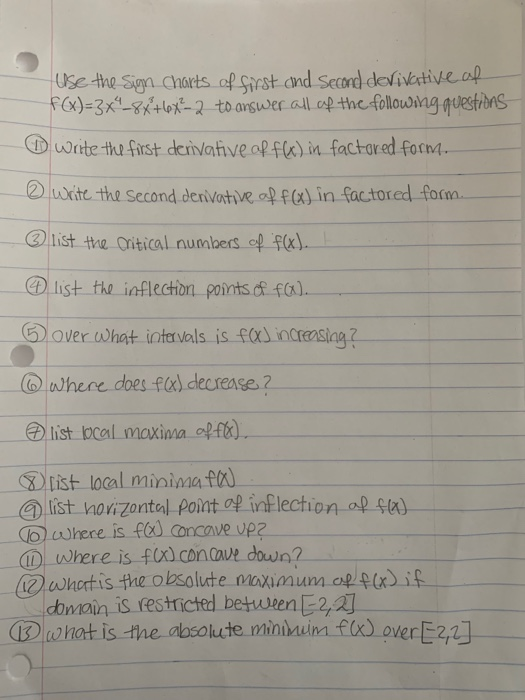 Use the sign charts of first and second derivative of
f(x)=3x⁴-8x³+6x²-2 to answer all of the following questions
① Write the first derivative of f(x) in factored form.
② Write the second derivative of f(x) in factored form.
③ list the critical numbers of f(x).
④ list the inflection points of f(x).
⑤ over what intervals is f(x) increasing?
⑥ where does f(x) decrease?
⑦ list local maxima of f(x).
⑧ list local minima f(x)
⑨ list horizontal point of inflection of f(x)
⑩ where is f(x) concave up?
⑪ where is f(x) concave down?
⑫ what is the absolute maximum of f(x) if
domain is restricted between [-2,2]
⑬ what is the absolute minimum f(x) over [-2,2]